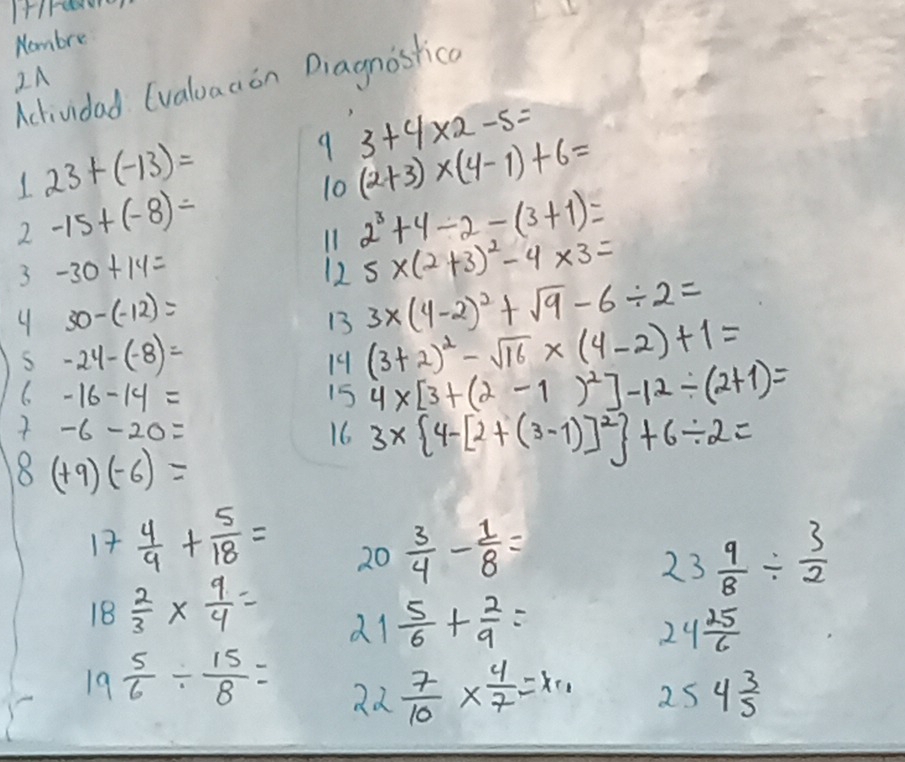 Nombre
2A
Actividad Evaluación Diagnóstica
1 23+(-13)=
2 -15+(-8)=
3 -30+14=
4 30-(-12)=
5 -24-(-8)=
6 -16-14=
7 -6-20=
8 (+9)(-6)=
9 3+4×2-5=
10 (2+3)×(4-1)+6=
11 2³+4÷2-(3+1)=
12 5×(2+3)²-4×3=
13 3×(4-2)²+√9-6÷2=
14 (3+2)²-√16×(4-2)+1=
15 4×[3+(2-1)²]-12÷(2+1)=
16 3×{4-[2+(3-1)]²}+6÷2=
17 4/9+5/18=
18 2/3×9/4=
19 5/6÷15/8=
20 3/4-1/8=
21 5/6+2/9=
22 7/10×4/7=
23 9/8÷3/2
24 25/6
25 4 3/5